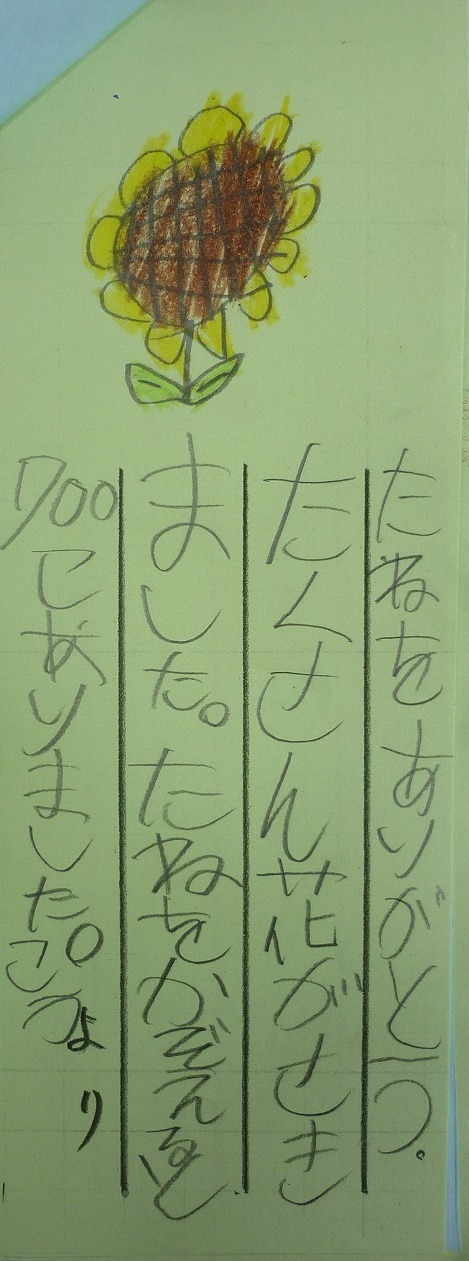 たねをありがとう。
たくさん花がさき
ました。たねをかぞえると
700こありました。こうより